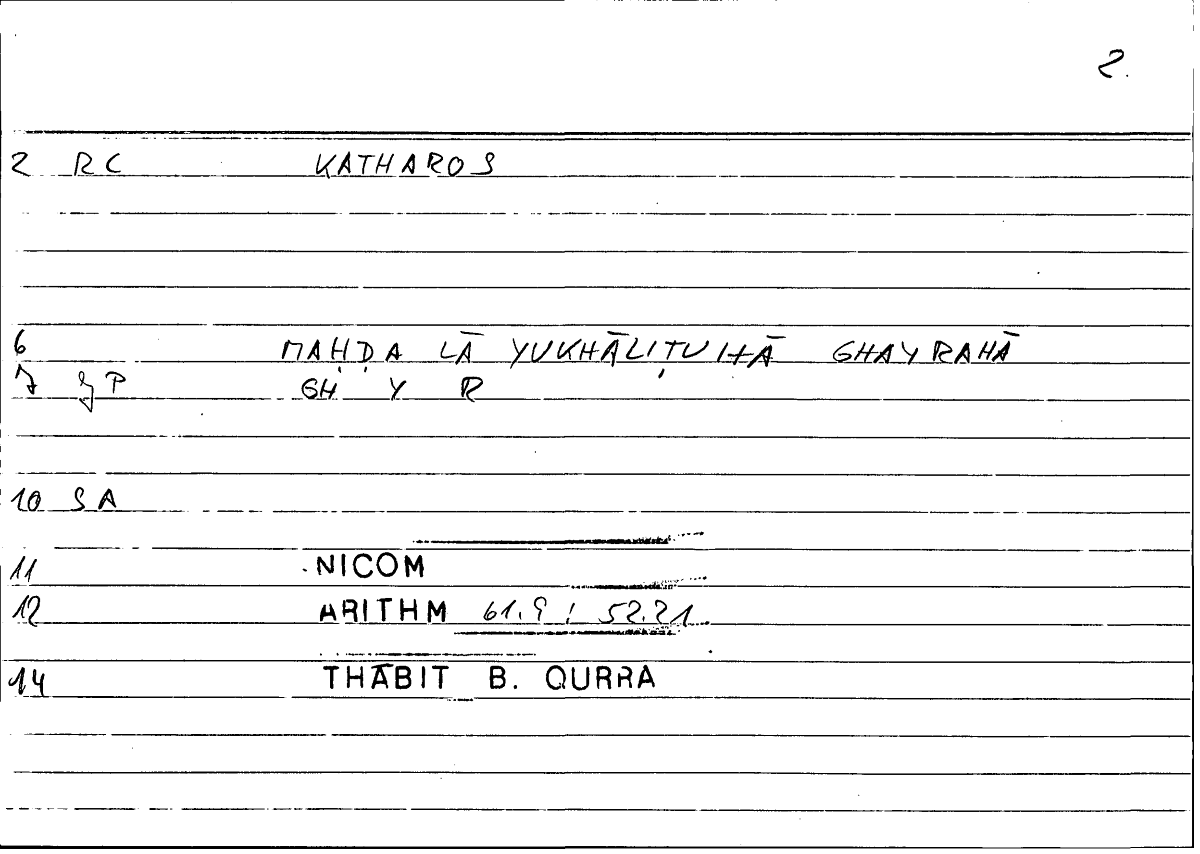 2.
2 RC KATHAROS
6 MAḤḌA LĀ YUKHĀLIṬUHĀ GHAYRAHĀ
7 GH Y R
10 SA
11 NICOM
12 ARITHM 61.9 ; 52.21
14 THĀBIT B. QURRA